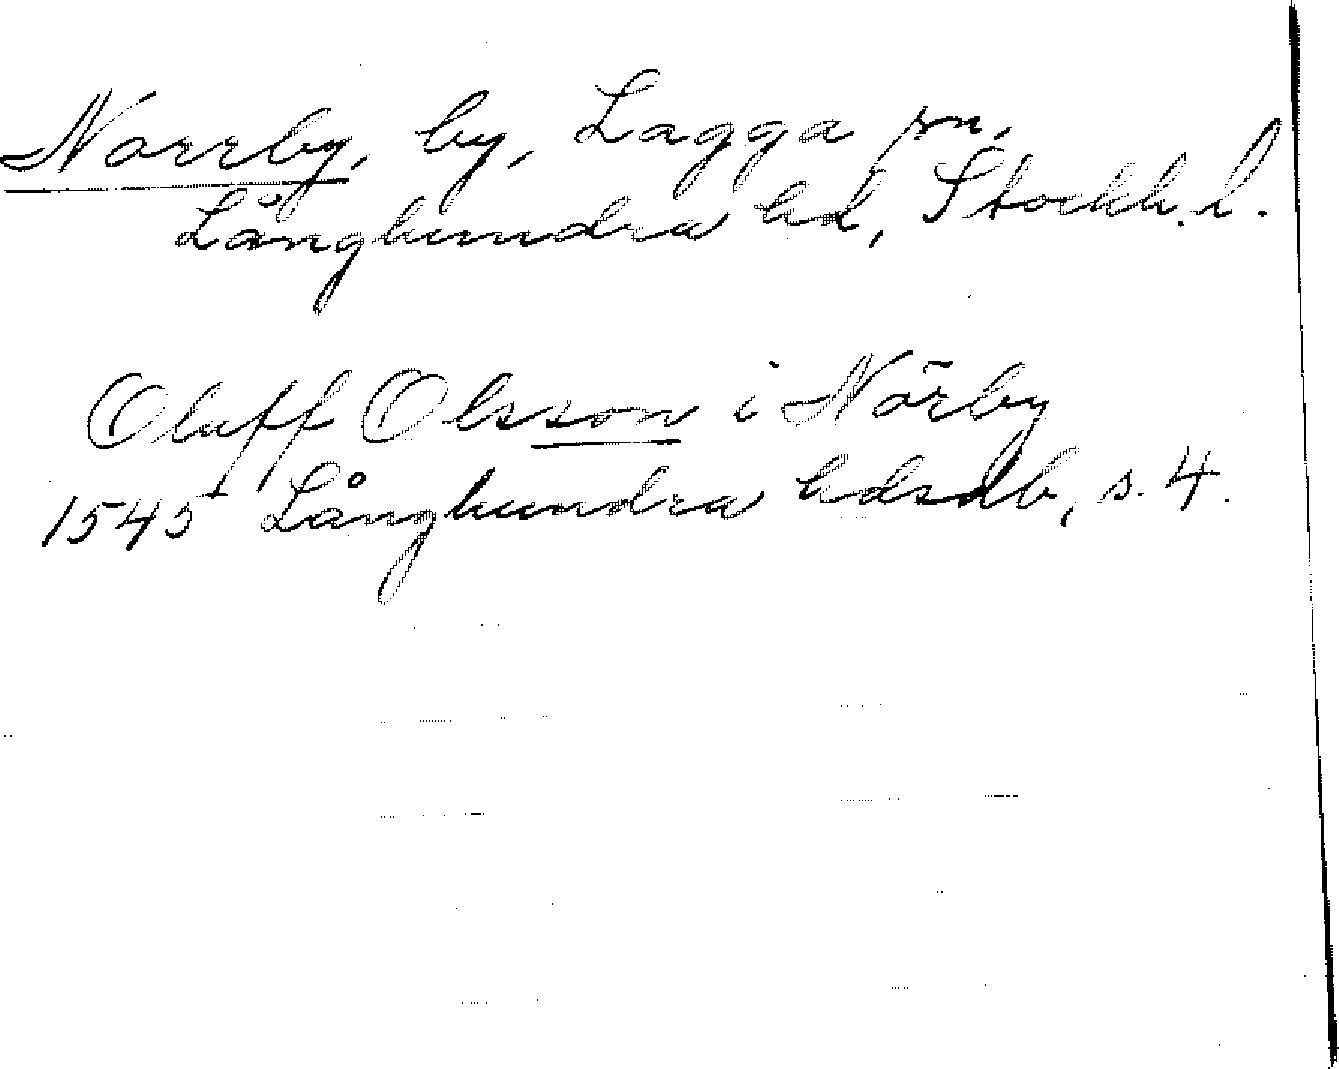 Norrby, by, Lagga sn,
Långhundra hd, Stockh. l.
Oluff Olsson i Nörby
1545 Långhundra hdsdb, s. 4.